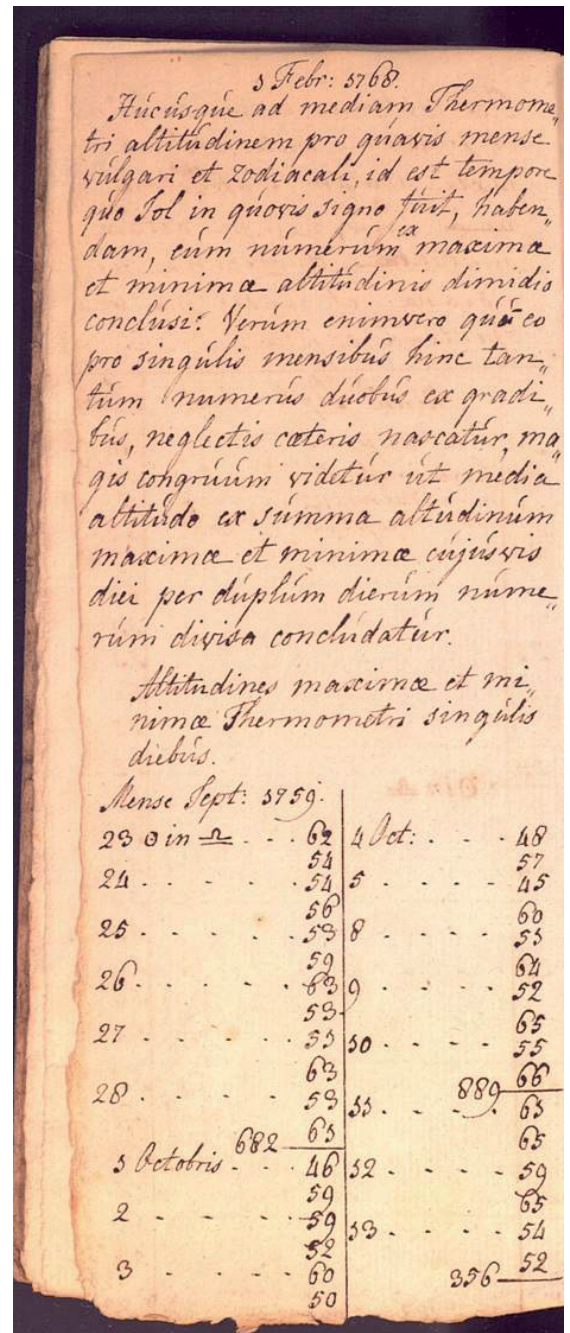 1 Febr: 1768.
Hucúsqúe ad mediam Thermome„
tri altitúdinem pro qúavis mense
vúlgari et zodiacali, id est tempore
qúo Sol in qúovis signo fúit, haben„
dam, eúm númerúm ex maximæ
et minimæ altitúdinis dimidio
conclúsi. Verúm enimvero qúú eo
pro singúlis mensibús hinc tan„
túm númerús dúobús ex gradi„
bús, neglectis cæteris nascatúr, ma
gis congrúúm videtúr út media
altitúdo ex súmma altúdinúm
maximæ et minimæ cújúsvis
diei per dúplúm dierúm núme„
rúm divisa conclúdatúr.
Altitudines maximæ et mi„
nimæ Thermometri singúlis
diebús.
Mense Sept: 1759.
23 ⊙ in ♎ . . . 62
54
24 . . . . . 54
56
25 . . . . . 53
59
26 . . . . . 63
53
27 . . . . . 51
63
28 . . . . . 53
682 61
1 Octobris . . . 46
59
2 . . . . . 59
52
3 . . . . . 60
50
4 Oct: . . . 48
57
5 . . . . 45
60
8 . . . . 51
64
9 . . . . 52
65
10 . . . . 55
889 66
11 . . . . 61
65
12 . . . . 59
65
13 . . . . 54
356 52